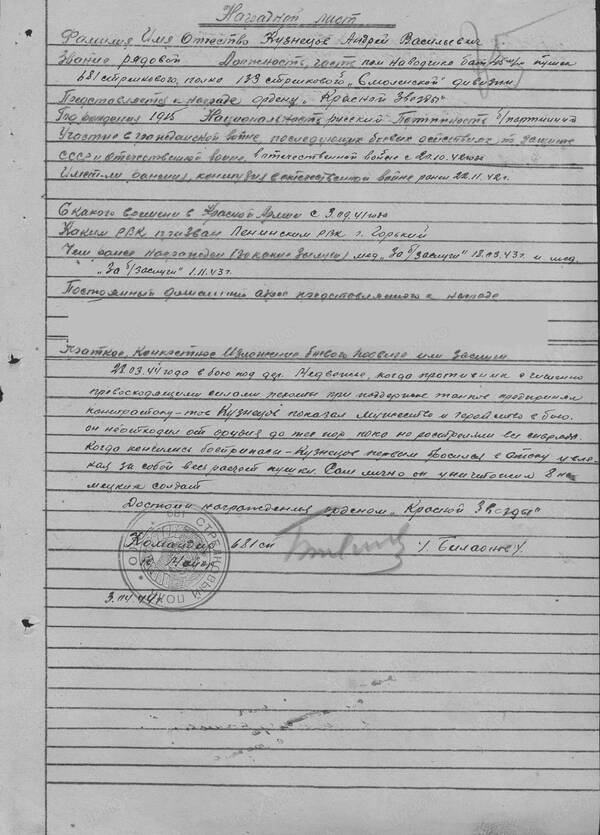 Наградной лист
Фамилия Имя Отчество Кузнецов Андрей Васильевич
Звание рядовой Должность, часть пом. наводчика бат. 45 м/м пушек
681 стрелкового полка 133 стрелковой "Смоленской" дивизии
Представляется к награде ордену "Красной Звезды"
Год рождения 1915 Национальность русский Партийность б/партийный
Участие в гражданской войне, последующих боевых действиях по защите
СССР и отечественной войне, в отечественной войне с 20.10.42 года
Имеет ли ранения, контузия в отечественной войне ранен 22.11.42 г.
С какого времени в Красной Армии с 3.09.41 года
Каким РВК призван Ленинским РВК г. Горький
Чем ранее награжден (за какие заслуги) мед. "За б/заслуги" 18.03.43 г. и мед.
"За б/заслуги" 1.11.43 г.
Постоянный домашний адрес представляемого к награде
Краткое, конкретное изложение боевого подвига или заслуги
22.03.44 года в бою под дер. Медвежье, когда противник численно
превосходящими силами пехоты при поддержке танков предпринял
контратаку - тов Кузнецов показал мужество и геройство в бою.
он не отходил от орудия до тех пор пока не расстрелял все снаряды.
Когда кончились боеприпасы - Кузнецов первым бросился в атаку увле-
кая за собой весь расчет пушки. Сам лично он уничтожил 8 не-
мецких солдат
Достоин награждения орденом "Красной Звезды"
Командир 681 сп
Майор
3.04.44 г.